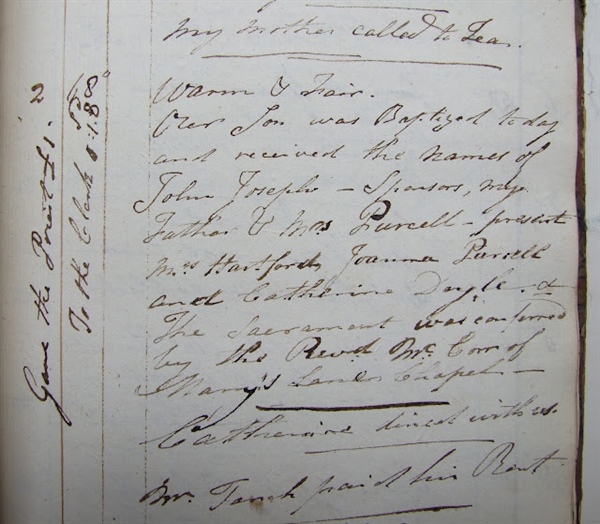 My Mother called to Tea.
Warm & Fair.
Our Son was Baptized today
and received the names of
John Joseph – Sponsors, my
Father & Mrs Purcell – present
Mrs Hartford, Joanna Purcell
and Catherine Doyle.
The Sacrament was conferred
by the Revd. Mr. Corr of
Mary's Lane Chapel –
Catherine dined with us.
Mr. paid his Rent
2
Gave the Priest £1.
To the Clerk